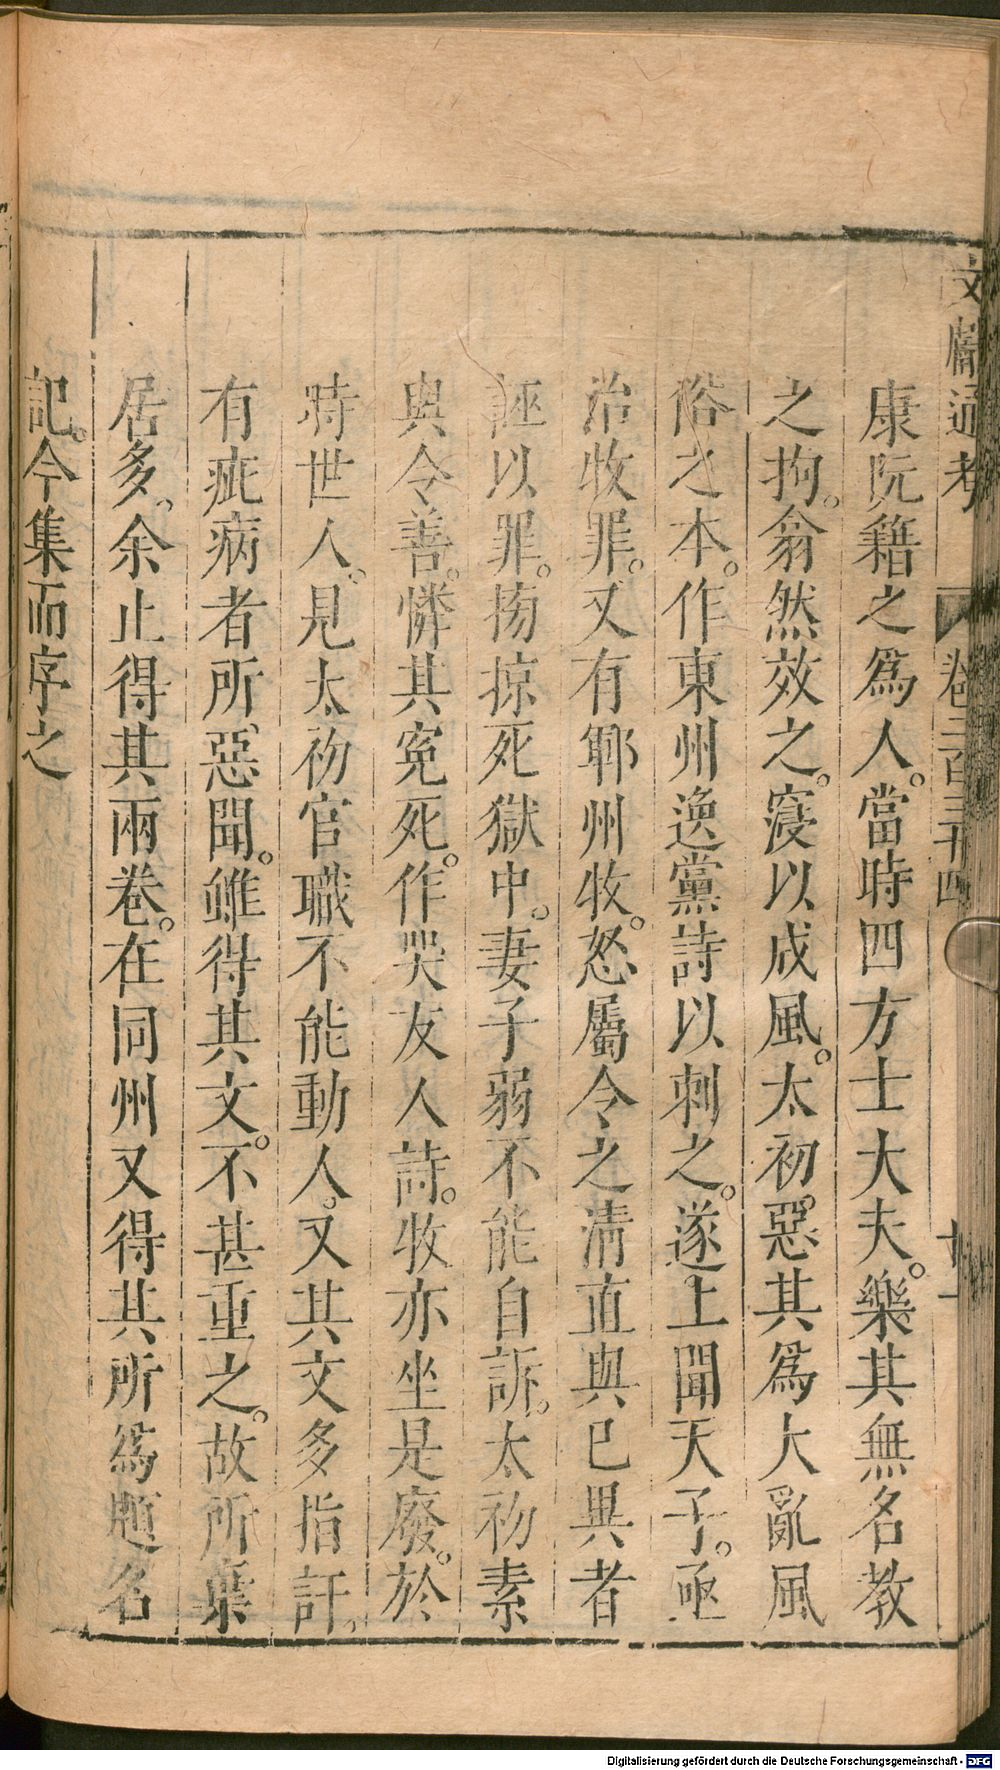 文獻通考 卷二百三十四 十一
康阮籍之爲人。當時四方士大夫。樂其無名教
之拘。翕然效之。寖以成風。太初惡其爲大亂風
俗之本。作東州逸黨詩以刺之。遂上聞天子。亟
治牧罪。又有鄆州牧。怒屬令之淸直與己異者
誣以罪。搒掠死獄中。妻子弱不能自訴。太初素
與令善。憐其寃死。作哭友人詩。牧亦坐是廢。於
時世人。見太初官職不能動人。又其文多指訐。
有疵病者所惡聞。雖得其文。不甚重之。故所棄
居多。余止得其兩卷。在同州又得其所爲題名
記。今集而序之
Digitalisierung gefördert durch die Deutsche Forschungsgemeinschaft - DFG